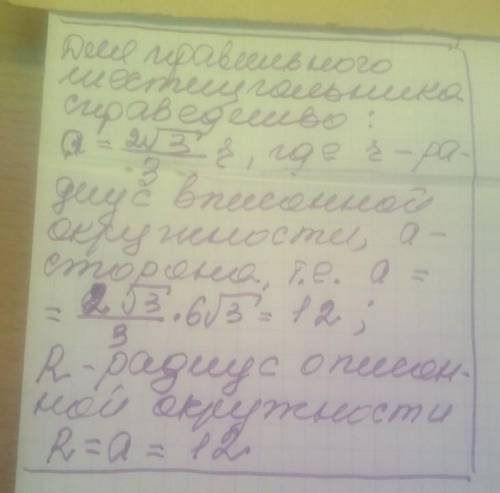 Для правильного
шестиугольника
справедливо:
a = 2√3/3 r, где r – ра-
диус вписанной
окружности, a –
сторона, т.е. a =
= 2√3/3 · 6√3 = 12;
R – радиус описан-
ной окружности
R = a = 12